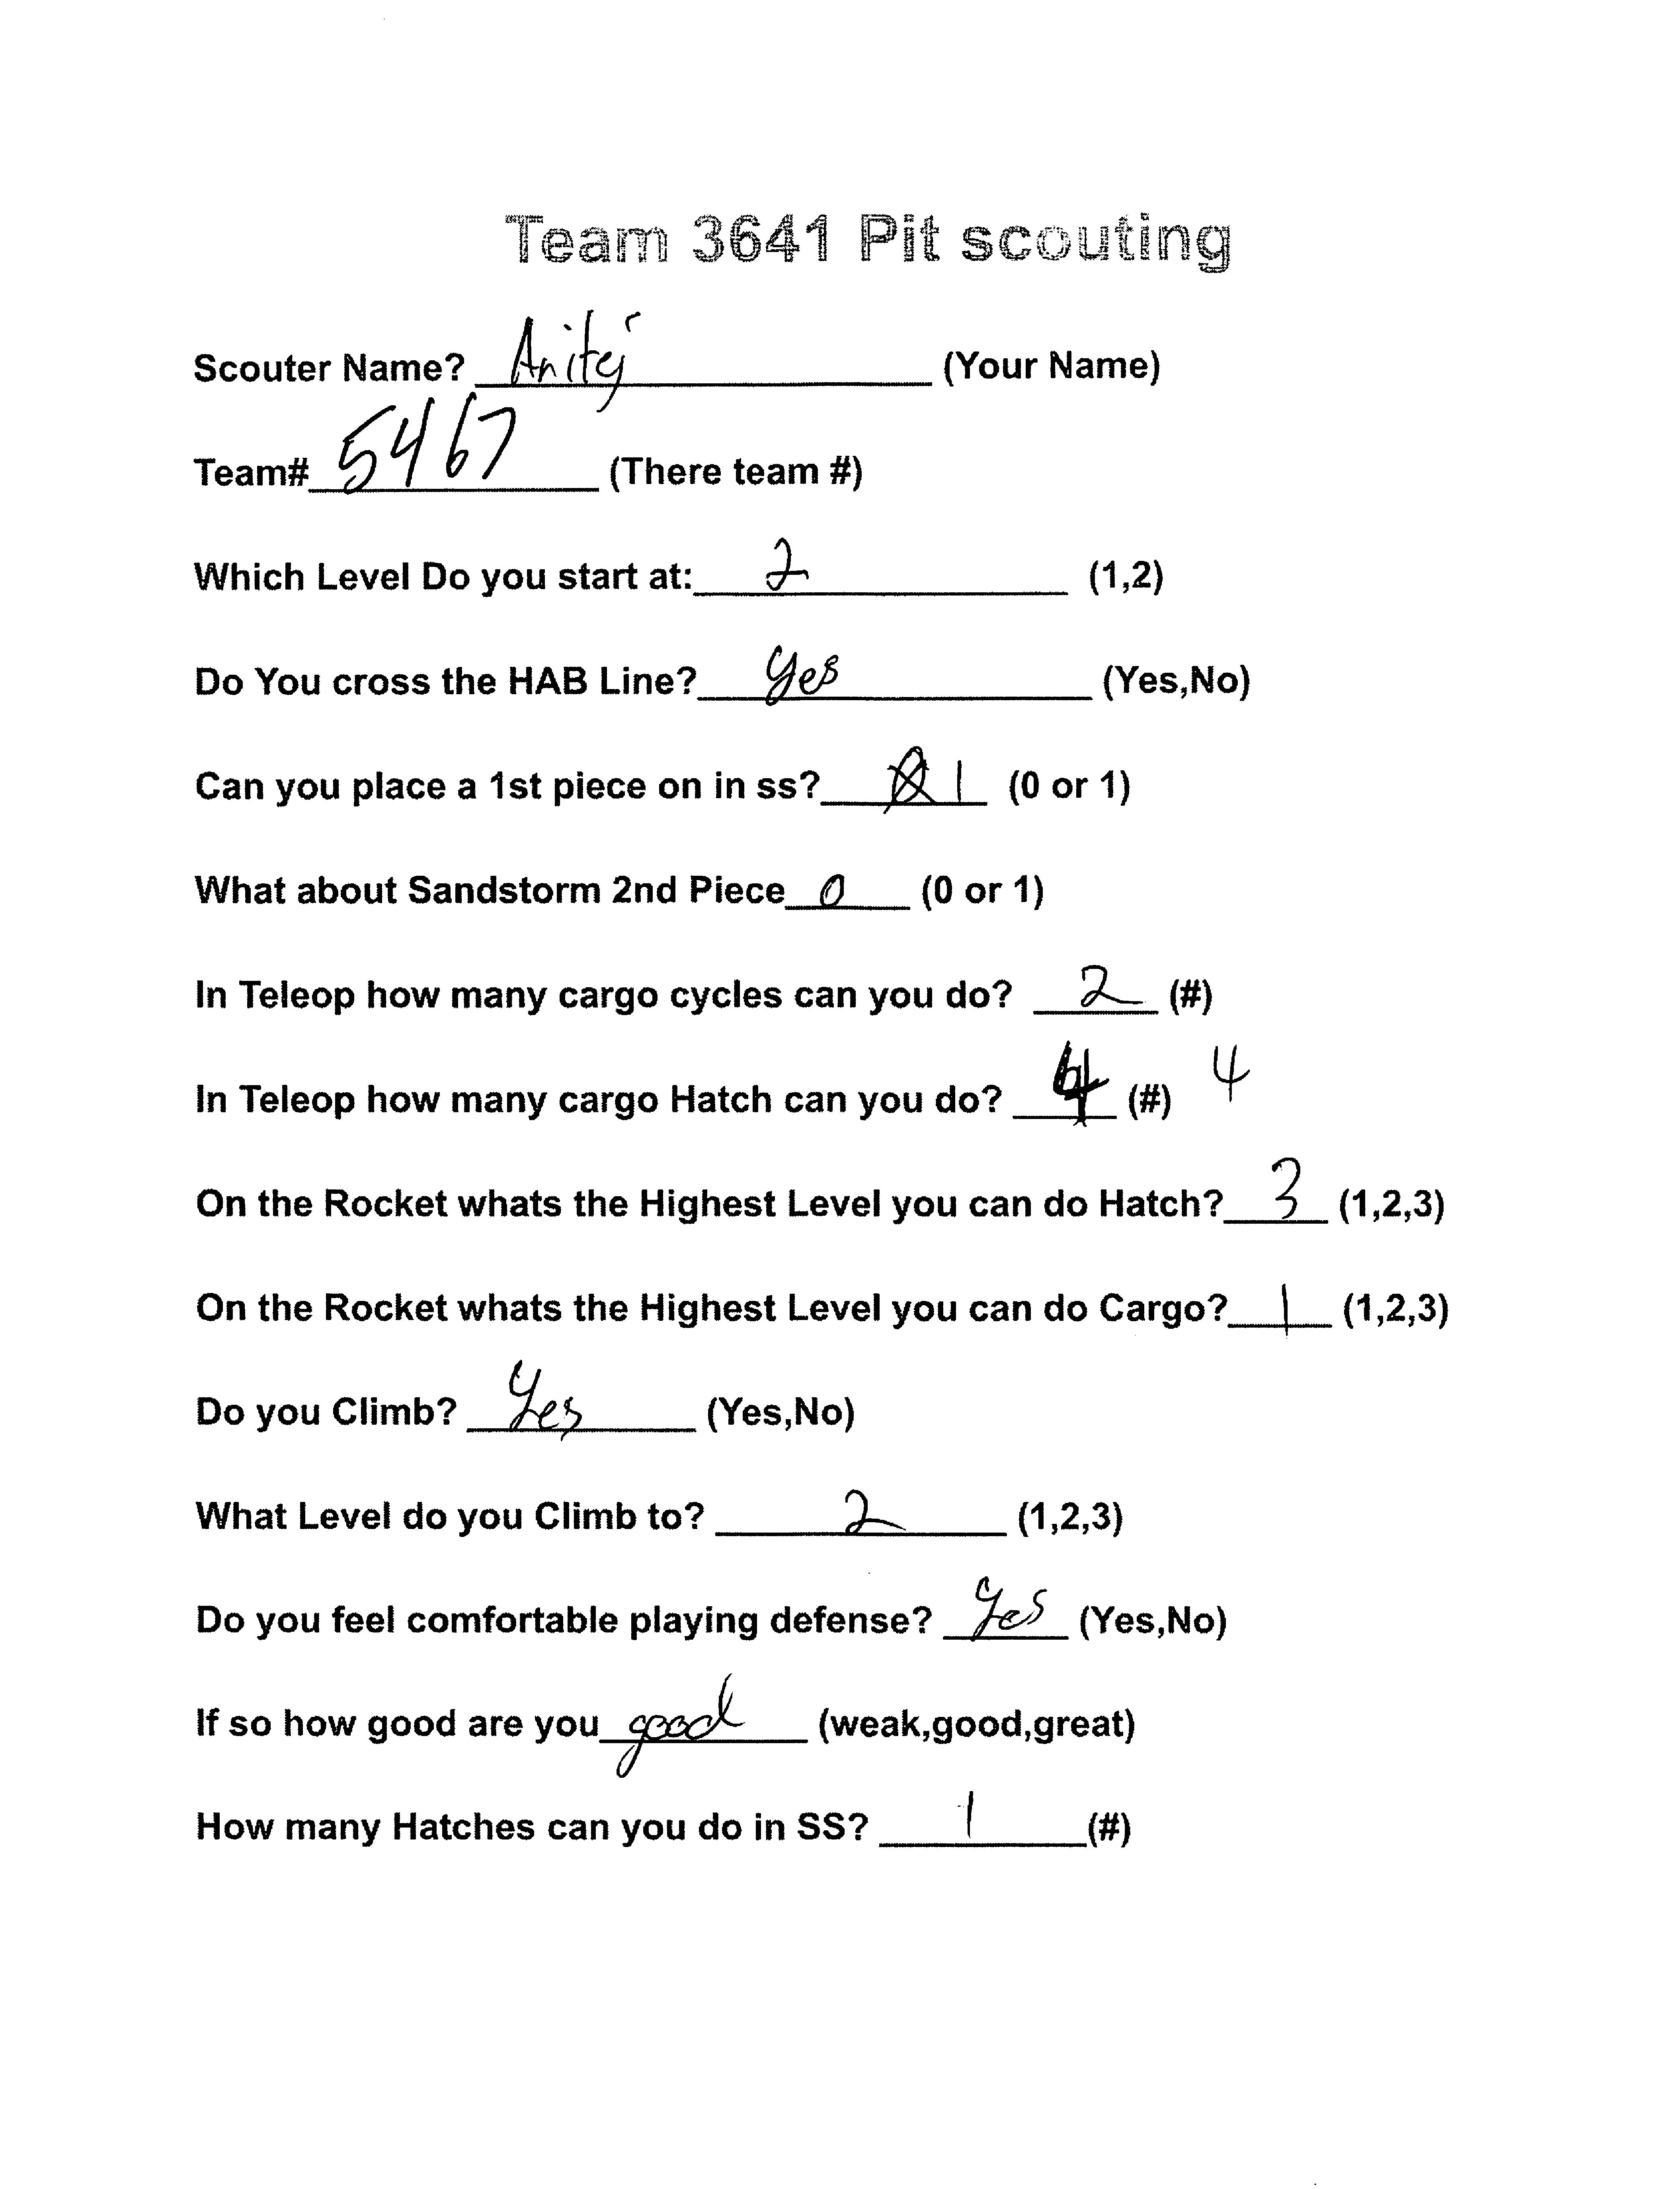 Team 3641 Pit scouting
Scouter Name? Anitej (Your Name)
Team# 5467 (There team #)
Which Level Do you start at: 2 (1,2)
Do You cross the HAB Line? yes (Yes,No)
Can you place a 1st piece on in ss? 1 (0 or 1)
What about Sandstorm 2nd Piece 0 (0 or 1)
In Teleop how many cargo cycles can you do? 2 (#)
In Teleop how many cargo Hatch can you do? 4 (#) 4
On the Rocket whats the Highest Level you can do Hatch? 3 (1,2,3)
On the Rocket whats the Highest Level you can do Cargo? 1 (1,2,3)
Do you Climb? Yes (Yes,No)
What Level do you Climb to? 2 (1,2,3)
Do you feel comfortable playing defense? Yes (Yes,No)
If so how good are you good (weak,good,great)
How many Hatches can you do in SS? 1 (#)